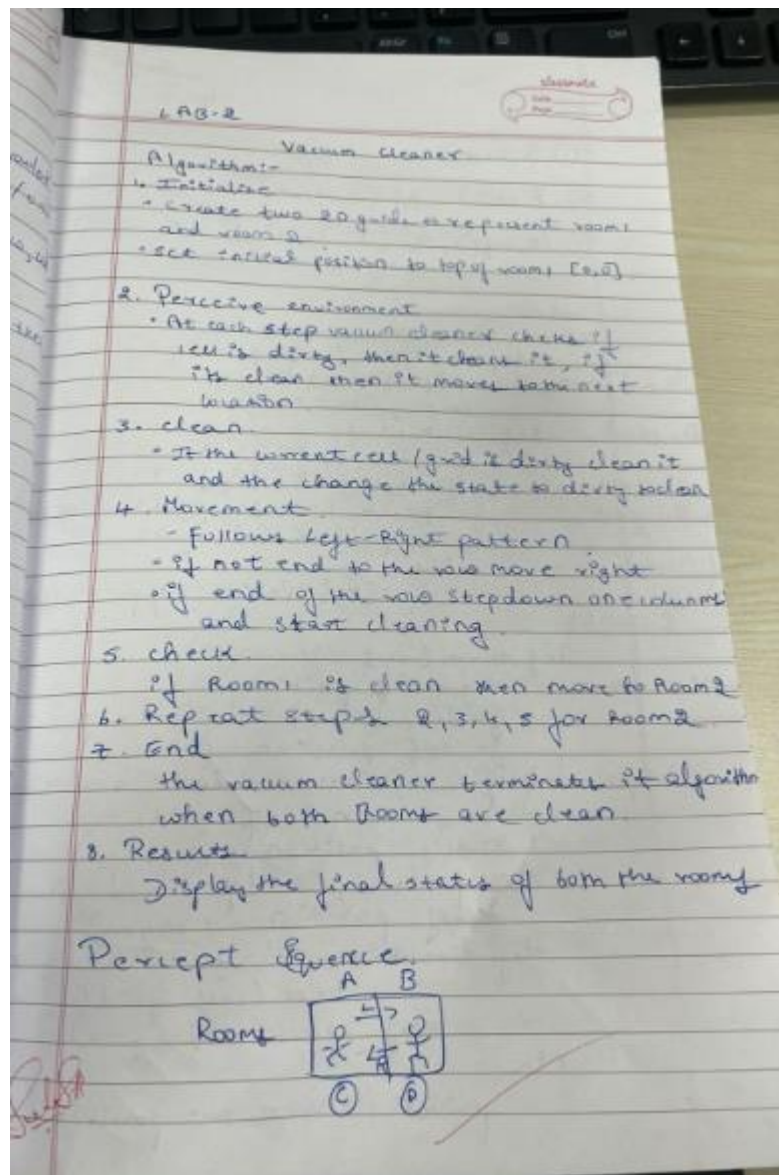 classmate
Date
Page
LAB-2
Vacuum Cleaner
Algorithm:-
1. Initialize
• create two 2D grids to represent room1
and room 2
• set initial position to top of room1 [0,0]
2. Perceive environment
• At each step vacum cleaner checks if
cell is dirty, then it cleans it, if
its clean then it moves to the next
location
3. clean
• If the current cell / grid is dirty clean it
and the change the state to dirty to clean
4. Movement
- Follows Left-Right pattern
- if not end to the row move right
• if end of the row step down one column
and start cleaning
5. check
if Room1 is clean then move to Room2
6. Repeat steps 2, 3, 4, 5 for Room2
7. End
the vacuum cleaner terminates it algorithm
when both Rooms are clean
8. Results
Display the final status of both the rooms
Percept Squence
A B
Rooms
C D